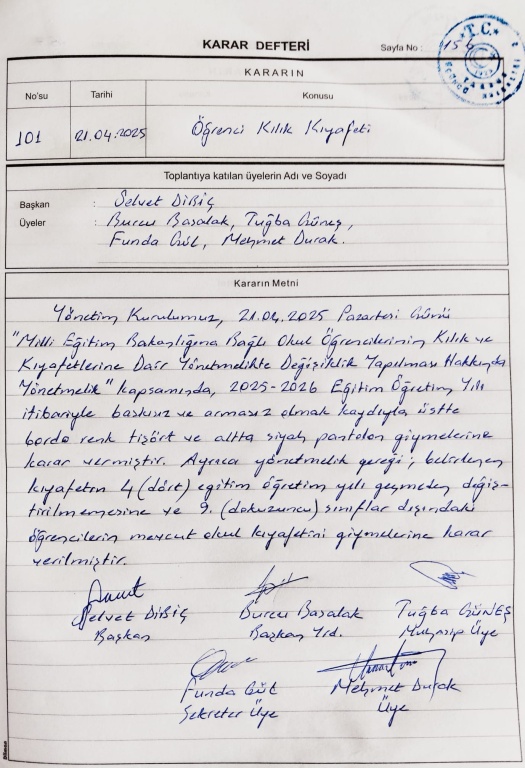 KARAR DEFTERİ
Sayfa No : 156
T.C.
KARARIN
No'su
Tarihi
Konusu
101
21.04.2025
Öğrenci Kılık Kıyafeti
Toplantıya katılan üyelerin Adı ve Soyadı
Başkan : Selvet DİBİÇ
Üyeler : Burcu Basalak, Tuğba Güneş,
Funda Gül, Mehmet Durak.
Kararın Metni
Yönetim Kurulumuz, 21.04.2025 Pazartesi Günü
"Milli Eğitim Bakanlığına Bağlı Okul Öğrencilerinin Kılık ve
Kıyafetlerine Dair Yönetmelikte Değişiklik Yapılması Hakkında
Yönetmelik" kapsamında, 2025-2026 Eğitim Öğretim Yılı
itibariyle baskısız ve armasız olmak kaydıyla üstte
bordo renk tişört ve altta siyah pantolon giymelerine
karar vermiştir. Ayrıca yönetmelik gereği; belirlenen
kıyafetin 4 (dört) eğitim öğretim yılı geçmeden değiş-
tirilmemesine ve 9. (dokuzuncu) sınıflar dışındaki
öğrencilerin mevcut okul kıyafetini giymelerine karar
verilmiştir.
Selvet DİBİÇ
Burcu Basalak
Tuğba GÜNEŞ
Başkan
Başkan Yrd.
Muhasip Üye
Funda Gül
Mehmet Durak
Sekreter Üye
Üye